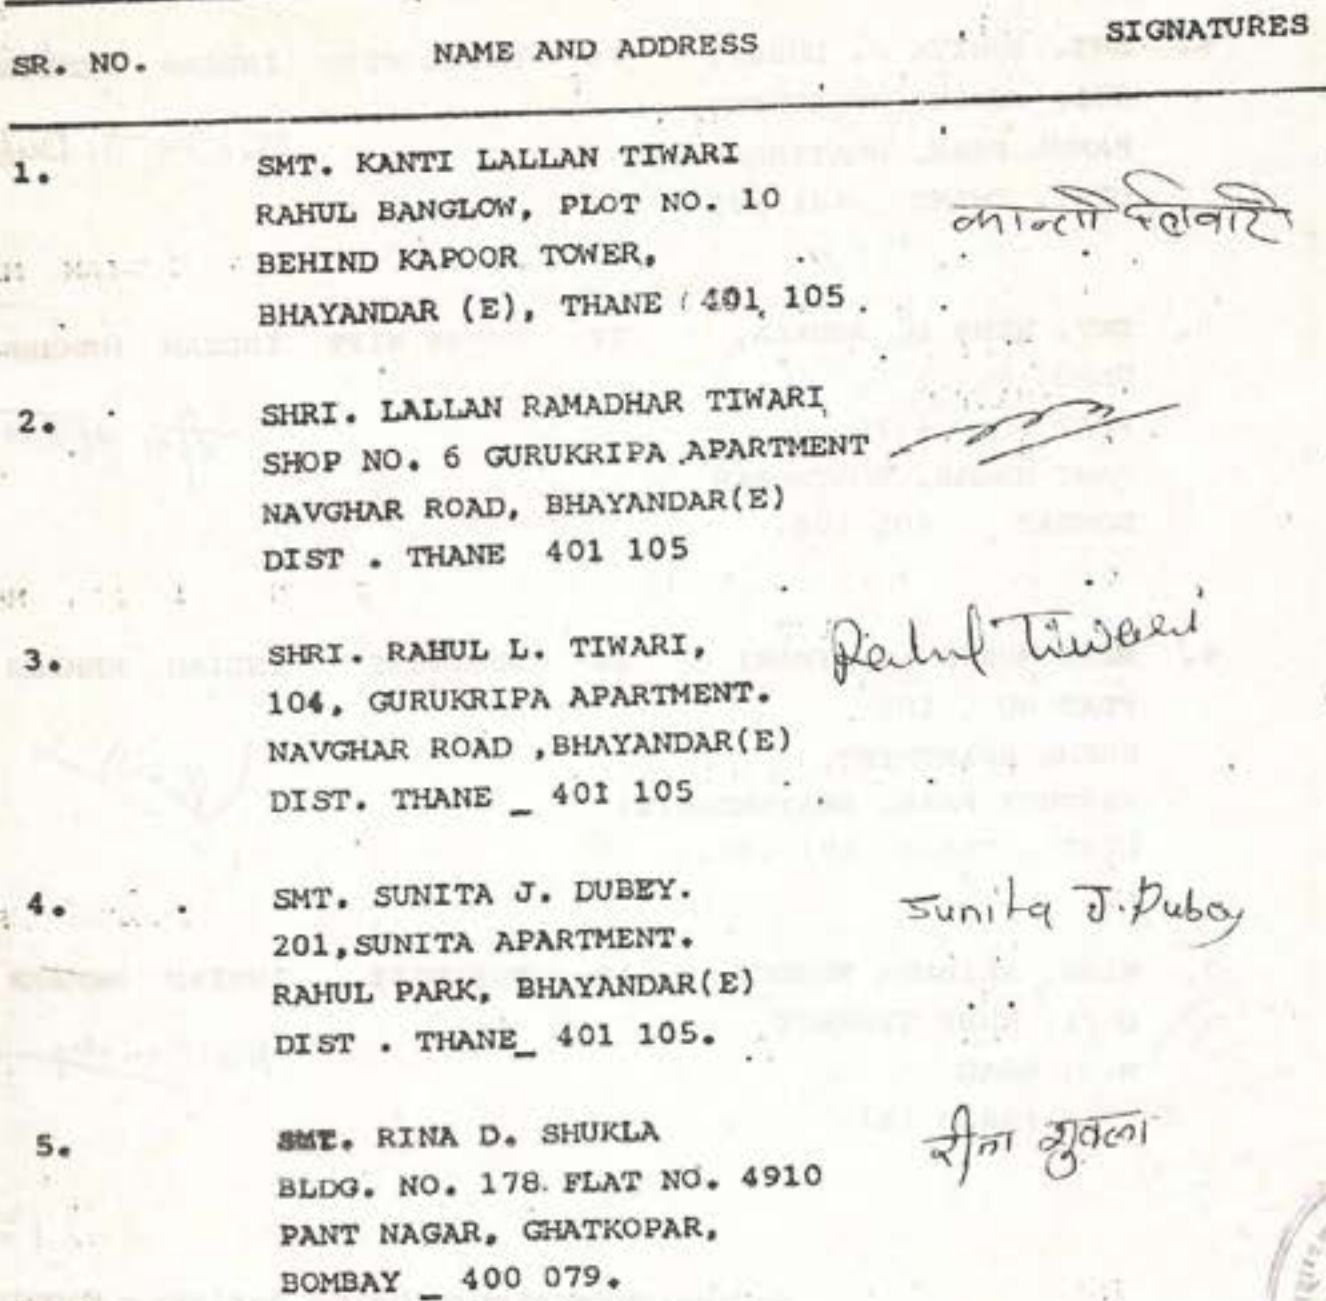 SR. NO. NAME AND ADDRESS SIGNATURES
1. SMT. KANTI LALLAN TIWARI
RAHUL BANGLOW, PLOT NO. 10 कान्ती तिवारी
BEHIND KAPOOR TOWER,
BHAYANDAR (E), THANE 401 105.
2. SHRI. LALLAN RAMADHAR TIWARI
SHOP NO. 6 GURUKRIPA APARTMENT
NAVGHAR ROAD, BHAYANDAR(E)
DIST . THANE 401 105
3. SHRI. RAHUL L. TIWARI, Rahul Tiwari
104, GURUKRIPA APARTMENT.
NAVGHAR ROAD ,BHAYANDAR(E)
DIST. THANE _ 401 105
4. SMT. SUNITA J. DUBEY. Sunita J. Dubey
201,SUNITA APARTMENT.
RAHUL PARK, BHAYANDAR(E)
DIST . THANE_ 401 105.
5. SMT. RINA D. SHUKLA रीना शुक्ला
BLDG. NO. 178 FLAT NO. 4910
PANT NAGAR, GHATKOPAR,
BOMBAY _ 400 079.